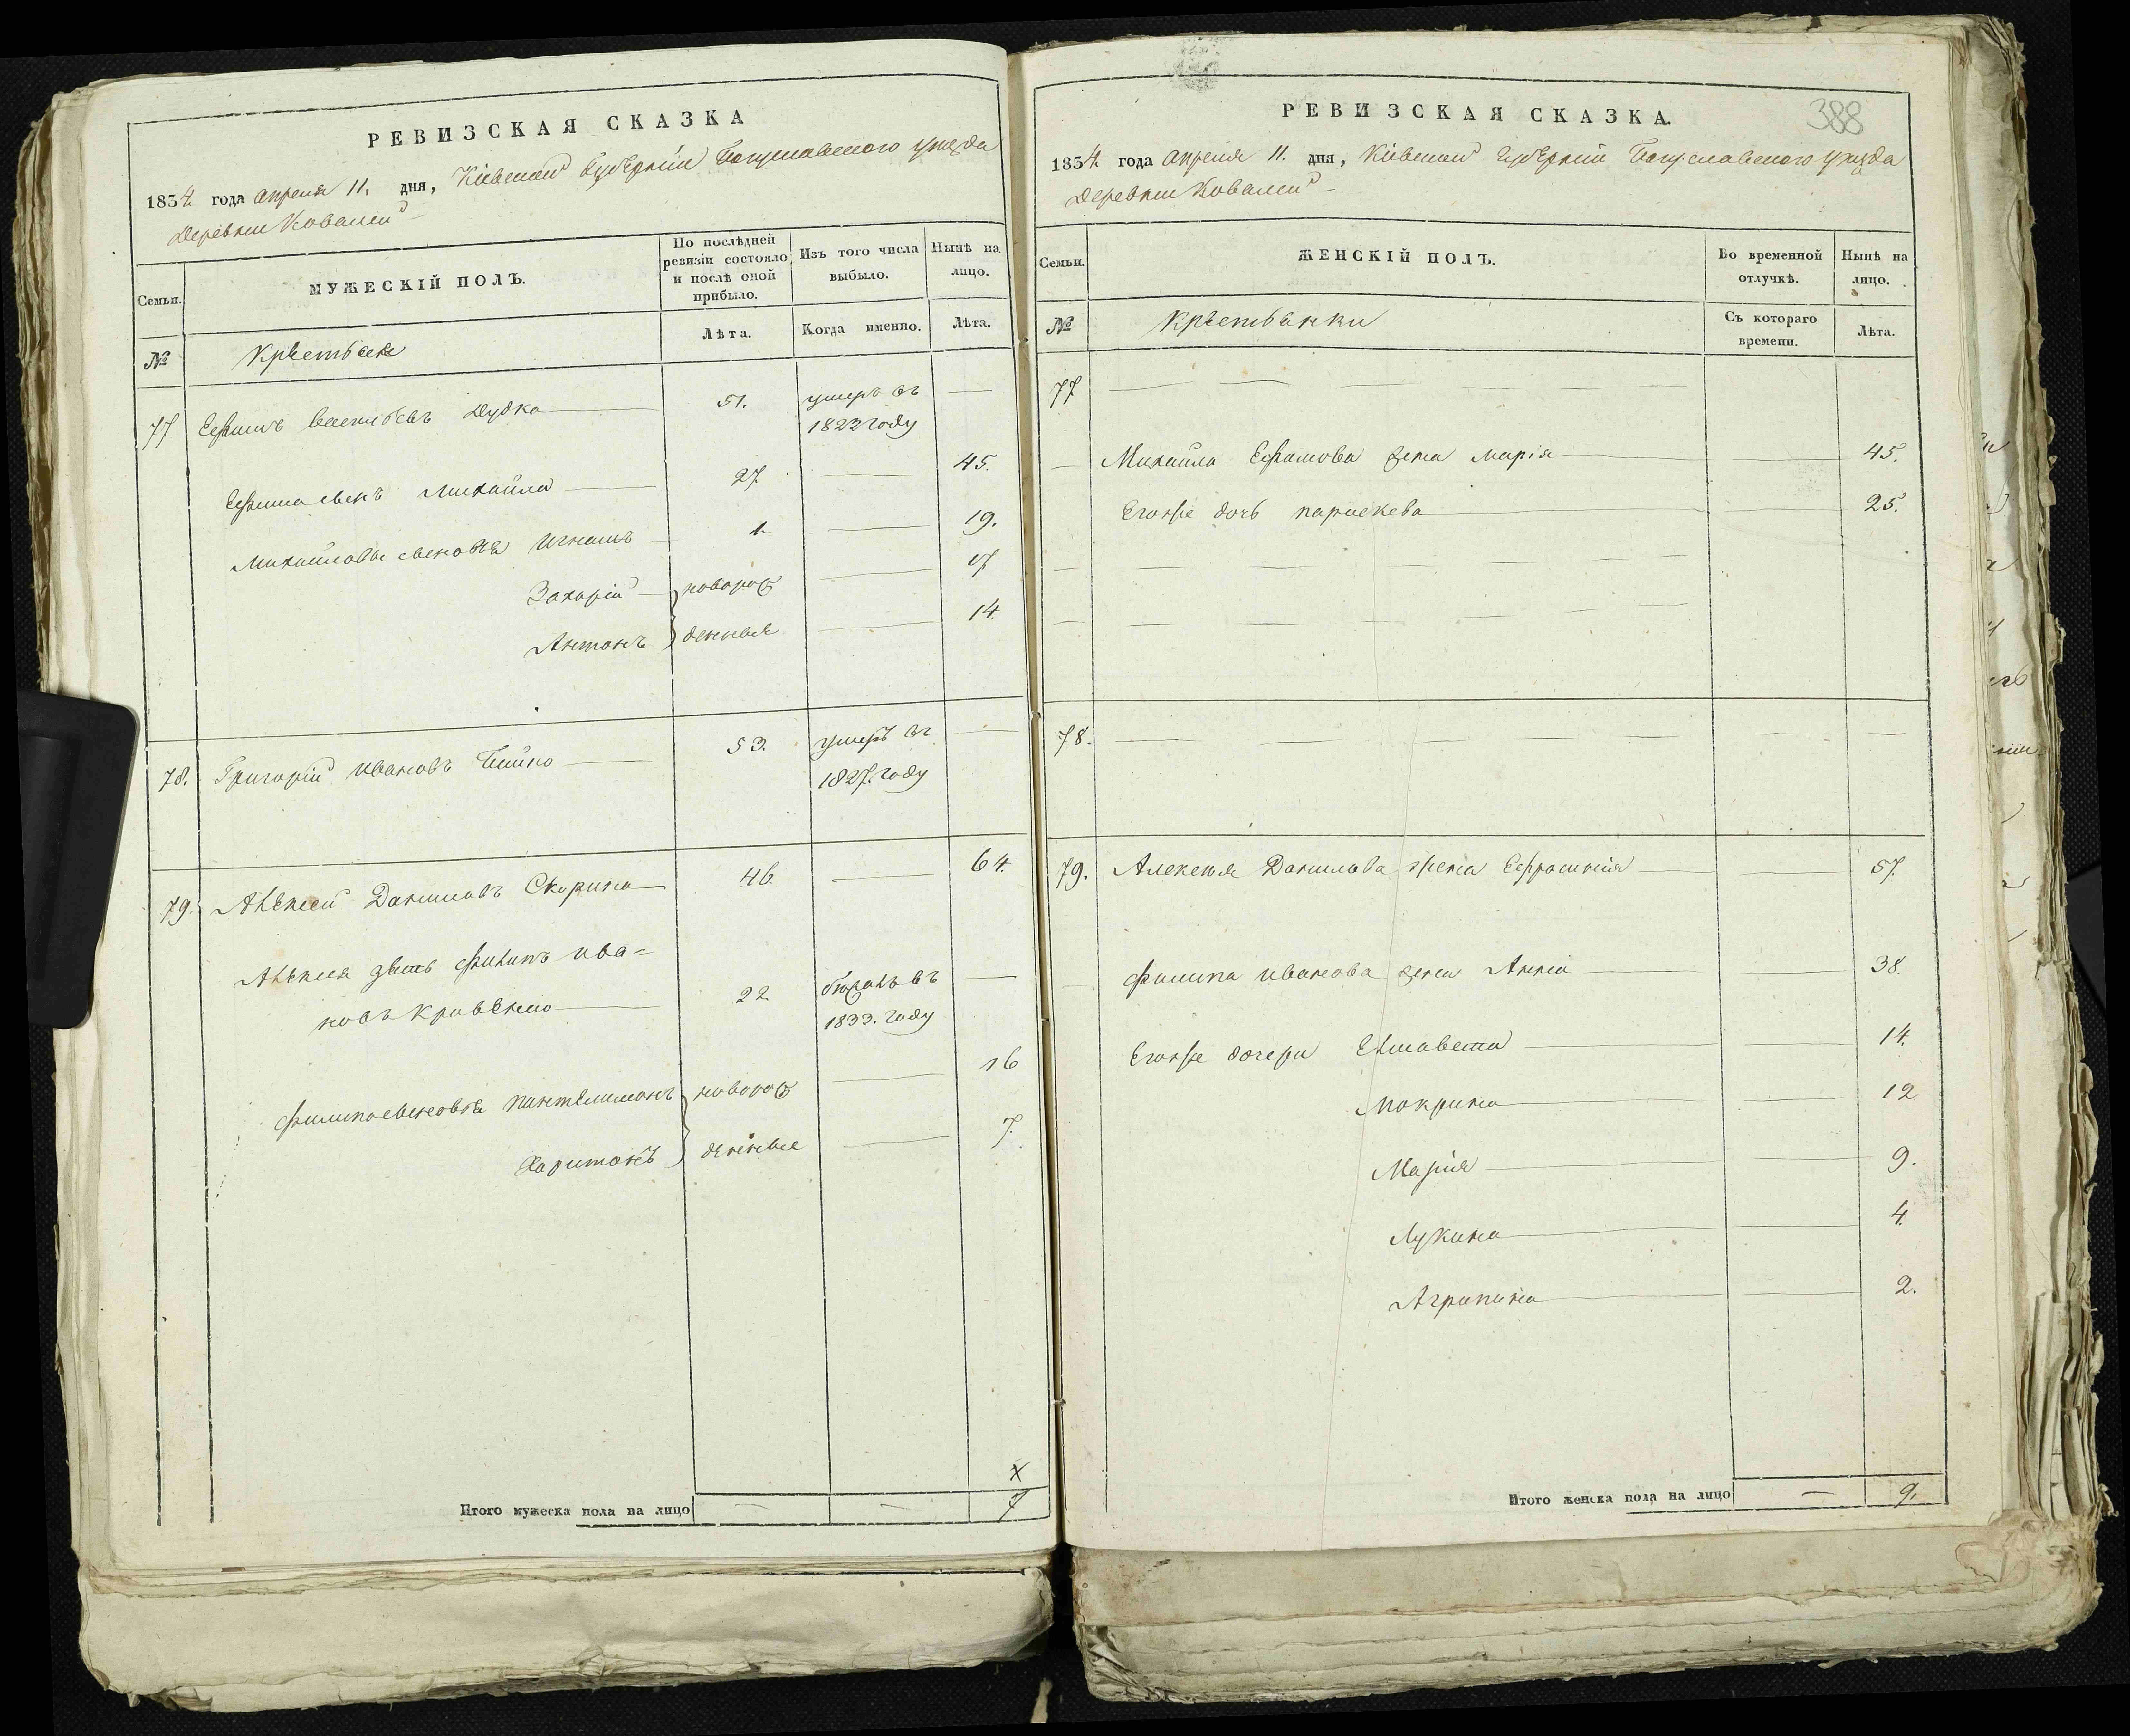 РЕВИЗСКАЯ СКАЗКА
1834 года апреля 11. дня, Кіевской Губерніи Богуславского уезда
деревни Ковалей
Семьи.
МУЖЕСКІЙ ПОЛЪ.
По послѣдней ревизіи состояло и послѣ оной прибыло.
Изъ того числа выбыло.
Нынѣ на лицо.
№
Лѣта.
Когда именно.
Лѣта.
77 Ефимъ Васильевъ Дудка 51. умеръ въ
1822 году
Ефима сынъ Михайла 27 45.
Михайловы сыновья Игнатъ 1. 19.
Захарій новорож 17
Антонъ денные 14.
78. Григорій Ивановъ 53. умеръ въ
1827. году
79 Алексей Даниловъ Скорина 46. 64.
Алексея зять Филипъ Ива=
новъ Кривенко 22. бежалъ въ
1833. году
Филипа сыновья Пантелимонъ новорож 16
Харитонъ денные 7.
Итого мужеска пола на лицо — — 7
х
388
РЕВИЗСКАЯ СКАЗКА.
1834 года апреля 11. дня, Кіевской Губерніи Богуславского уезда
деревни Ковалей
Семьи.
ЖЕНСКІЙ ПОЛЪ.
Во временной отлучкѣ.
Нынѣ на лицо.
№
Съ котораго времени.
Лѣта.
77
Михайла Ефимова жена Марія 45.
Егоже дочь Параскева 25.
78.
79. Алексея Данилова жена Ефросинія 57.
Филипа Иванова жена Анна 38.
Егоже дочери Елисавета 14.
Мокрина 12
Марія 9.
Лукина 4.
Агрипина 2.
Итого женска пола на лицо — 9.